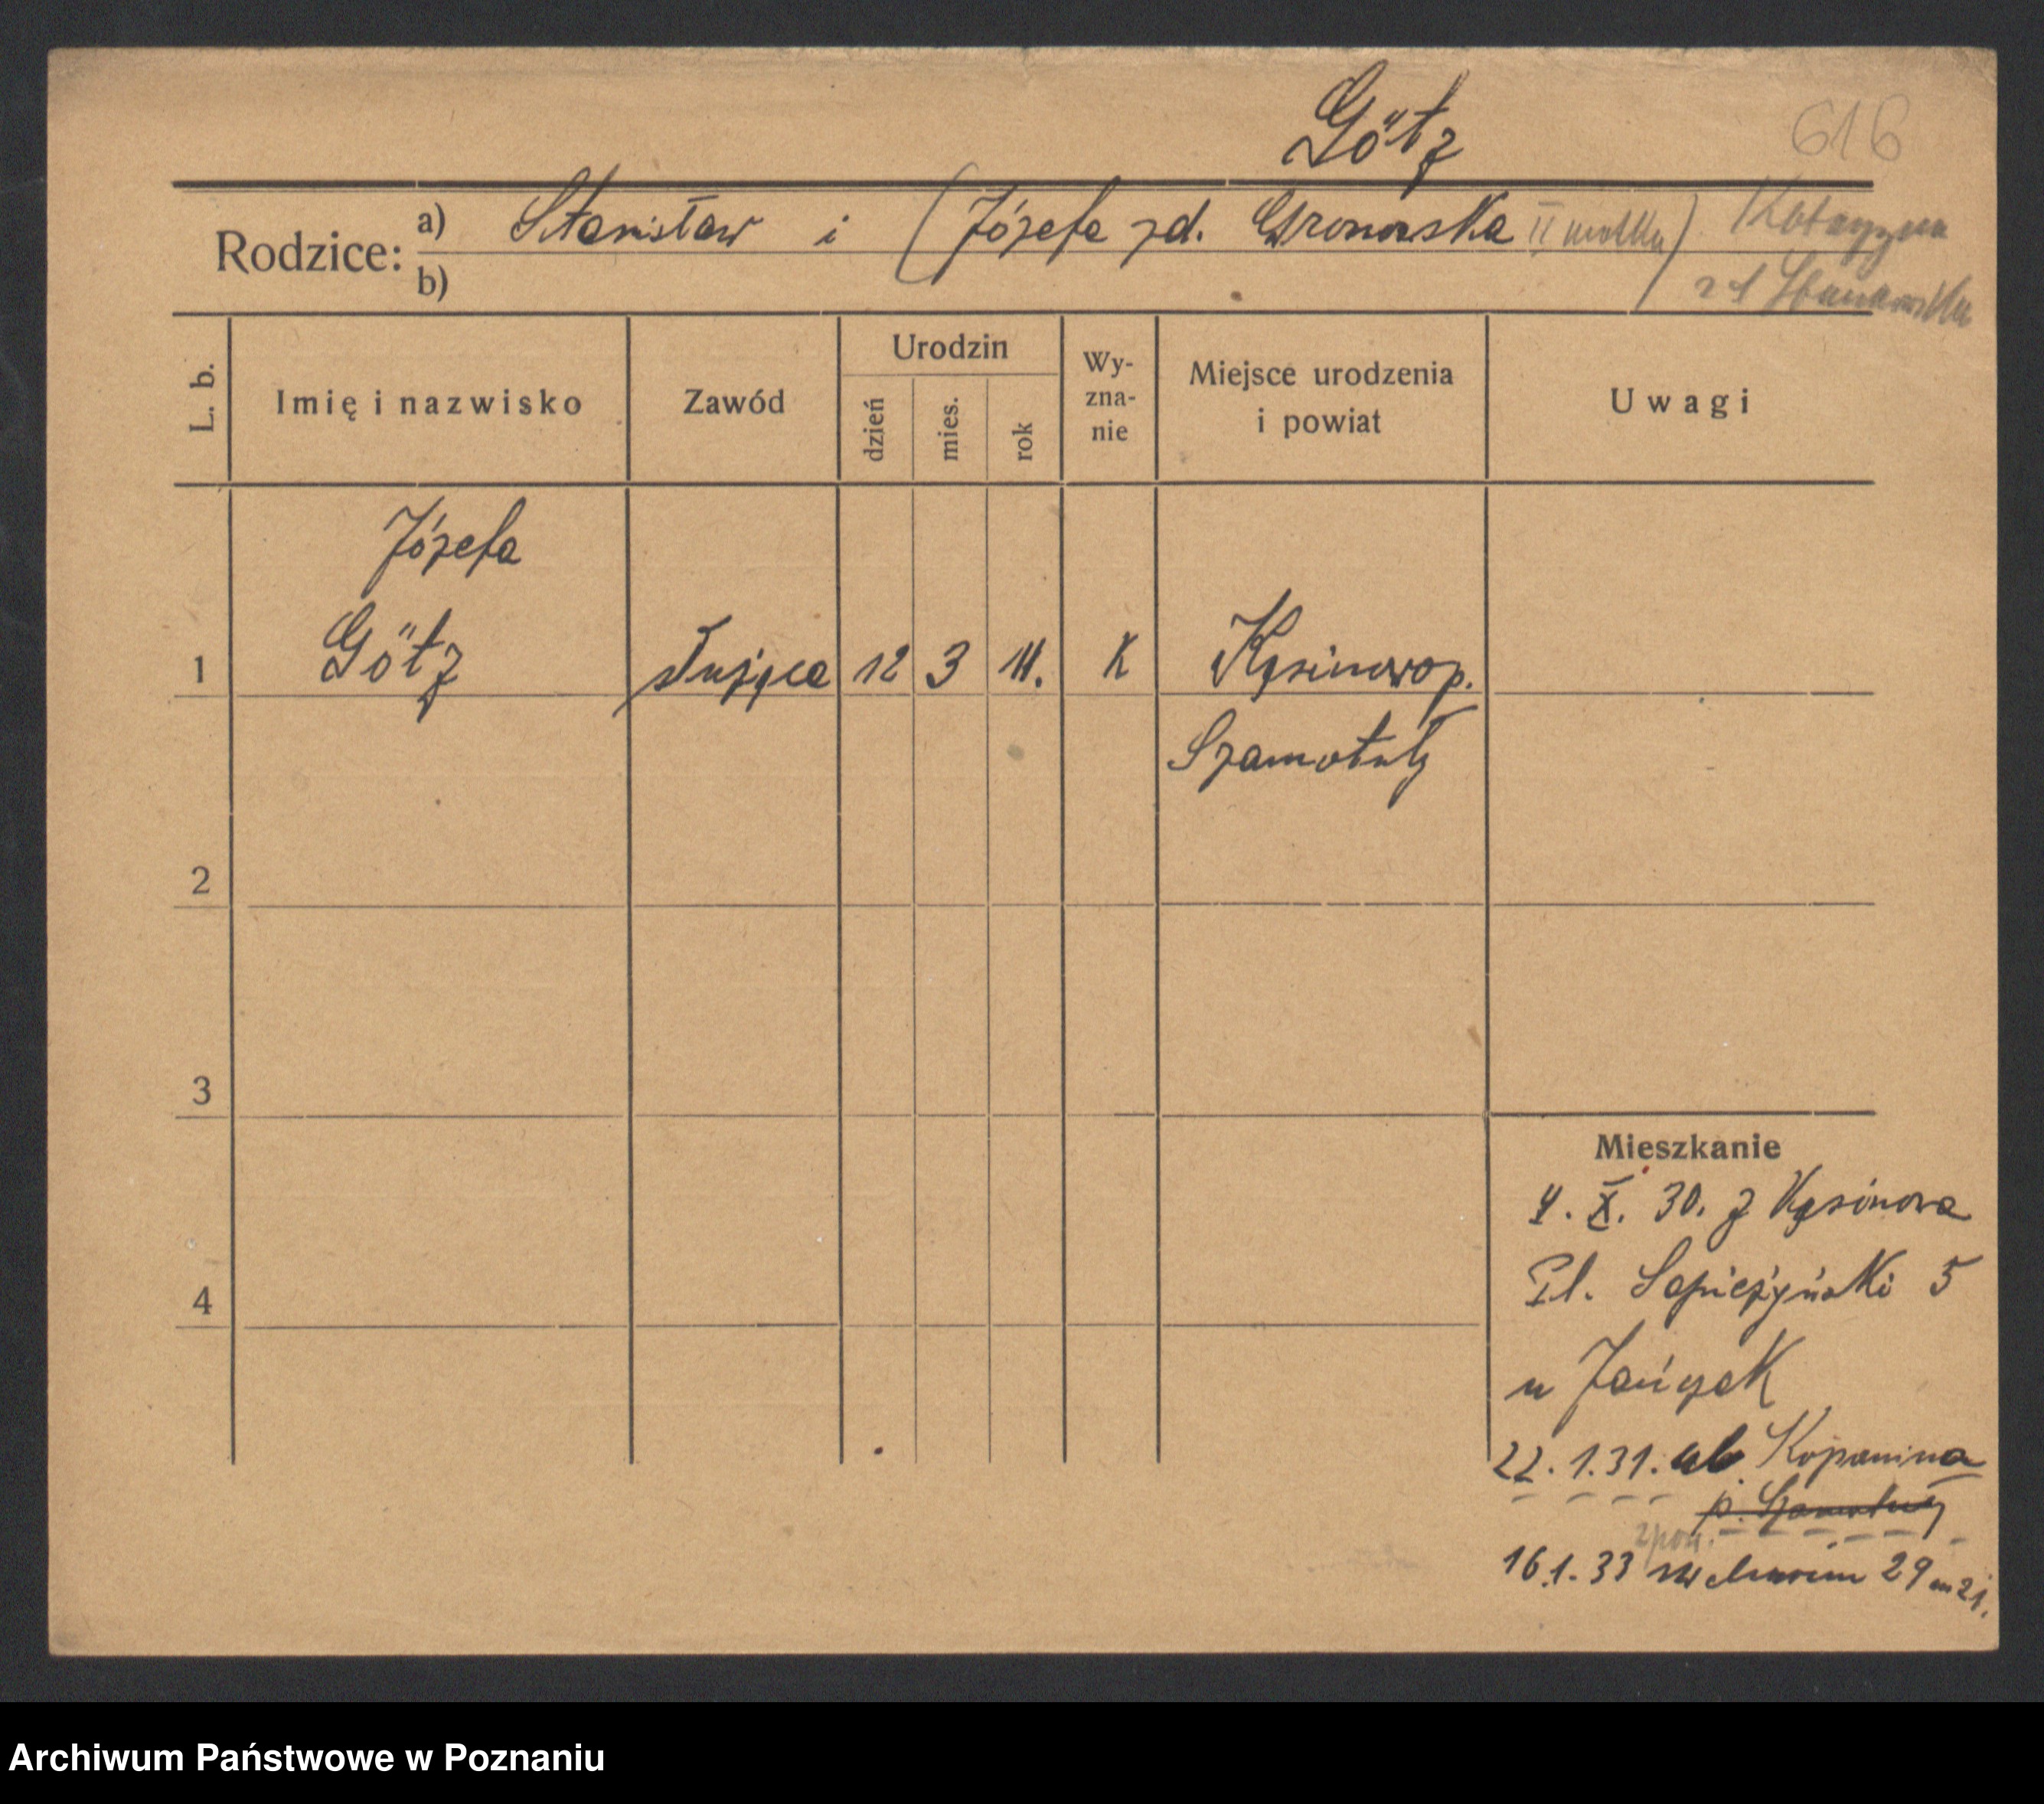 Götz
616
Rodzice: a) Stanisław i (Józefa zd. Gronowska II matka) Katarzyna
b) zd
L. b. Imię i nazwisko Zawód Urodzin dzień mies. rok Wy-zna-nie Miejsce urodzenia i powiat Uwagi
Józefa
1 Götz służąca 12 3 11. K Kąsinowo p.
Szamotuły
2
3
Mieszkanie
4. X. 30. z Kąsinowa
4
Pl. Sapieżyński 5
u Jańczak
22. 1. 31. ab Kopanina
p. Szamotuły
16.1.33 29 m 21.
Archiwum Państwowe w Poznaniu